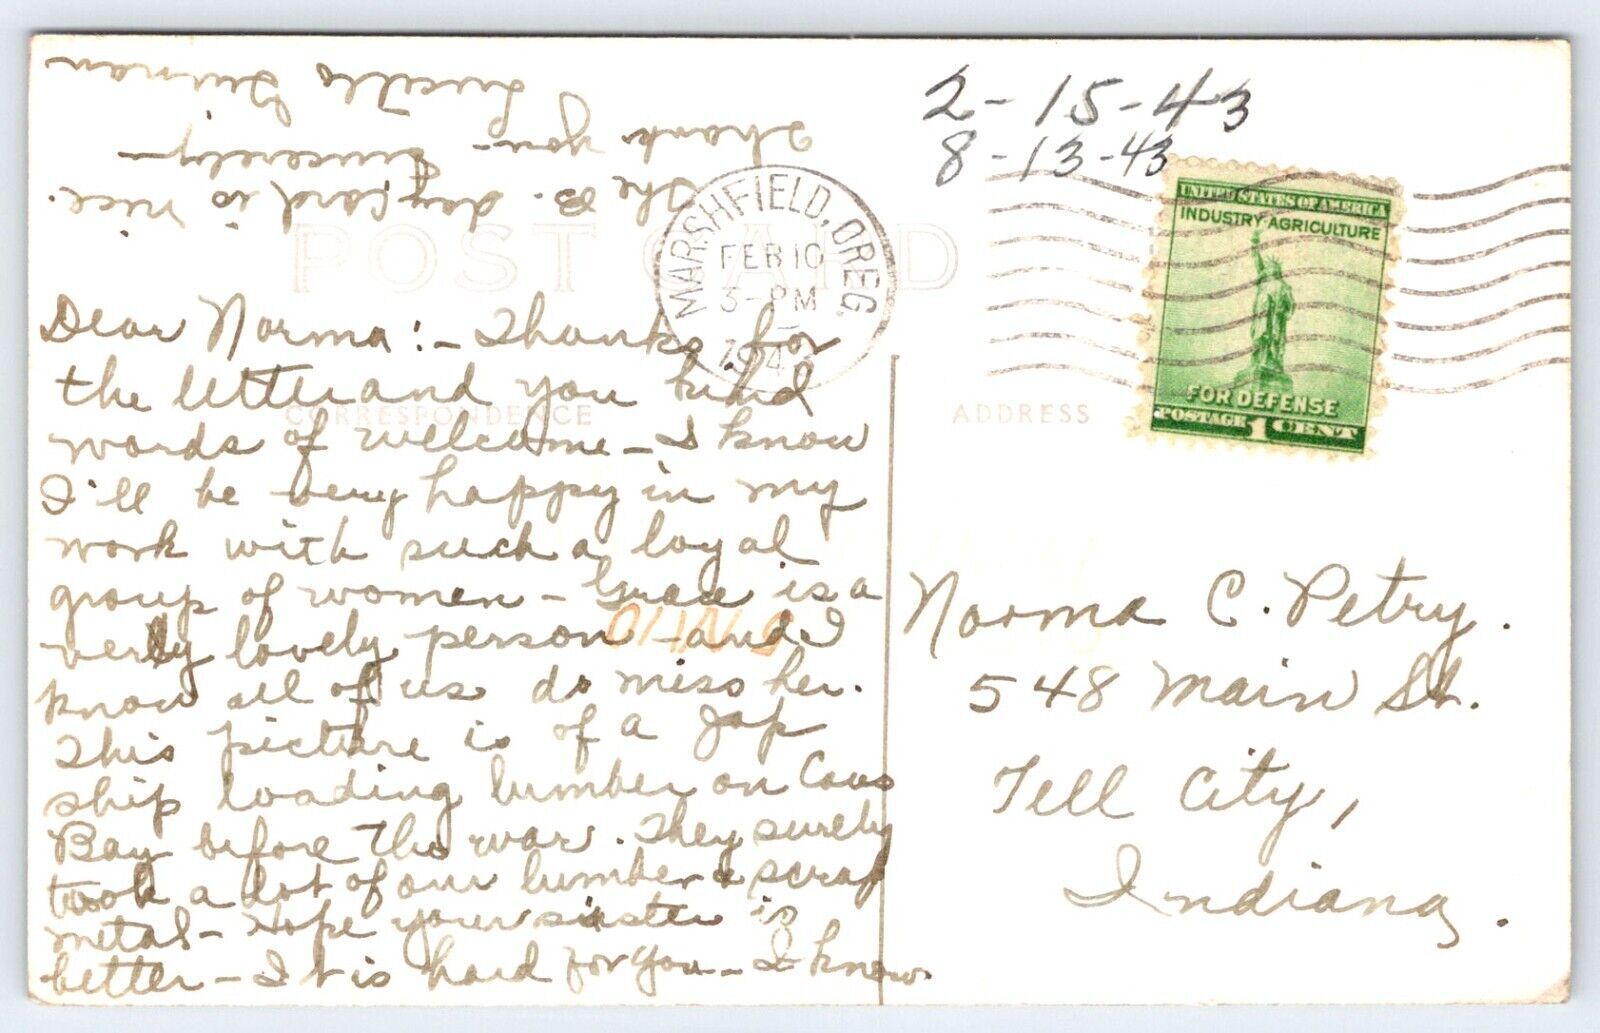 2-15-43
8-13-43
MARSHFIELD, OREG.
FEB 10
3-PM
1943
UNITED STATES OF AMERICA
INDUSTRY AGRICULTURE
FOR DEFENSE
POSTAGE 1 CENT
POST CARD
CORRESPONDENCE
ADDRESS
Dear Norma:- Thanks for
the letter and you kind
words of welcome - I know
I'll be very happy in my
work with such a loyal
group of women - Grace is a
very lovely person - and I
know all of us do miss her.
This picture is of a Jap
ship loading lumber on Coos
Bay before the war. They surely
took a lot of our lumber & scrap
metal - Hope your sister is
better - It is hard for you - I know.
The B. day card is nice.
Thank you - Sincerely -
Lucille
Norma C. Petry.
548 Main St.
Tell City,
Indiana.